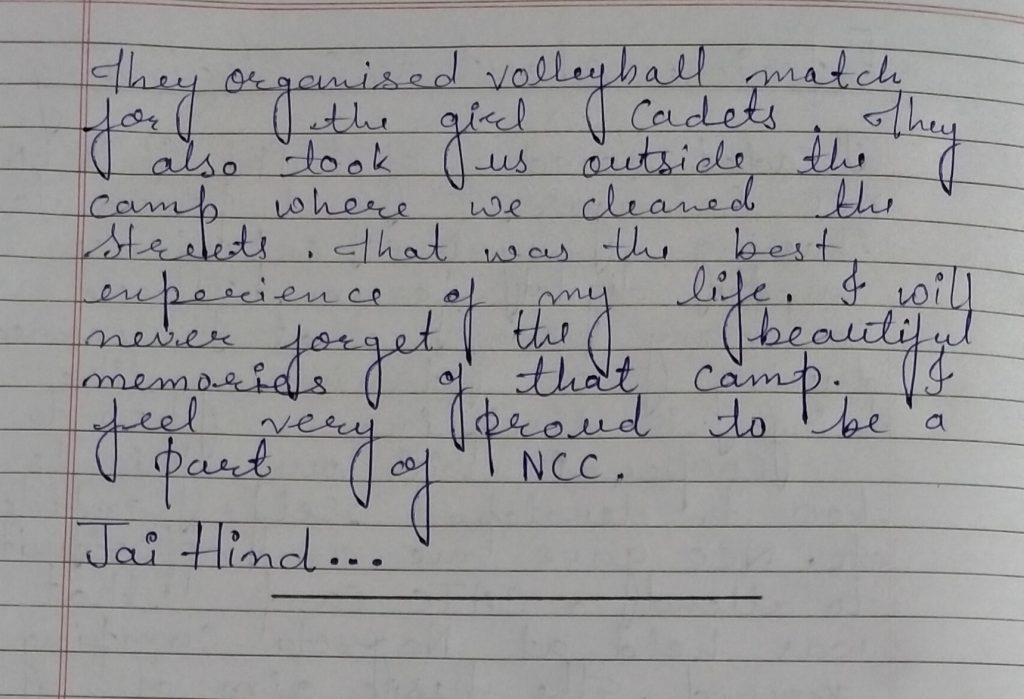 They organised volleyball match
for the girl cadets. They
also took us outside the
camp where we cleaned the
streets. That was the best
experience of my life. I will
never forget the beautiful
memories of that camp. I
feel very proud to be a
part of NCC.
Jai Hind...